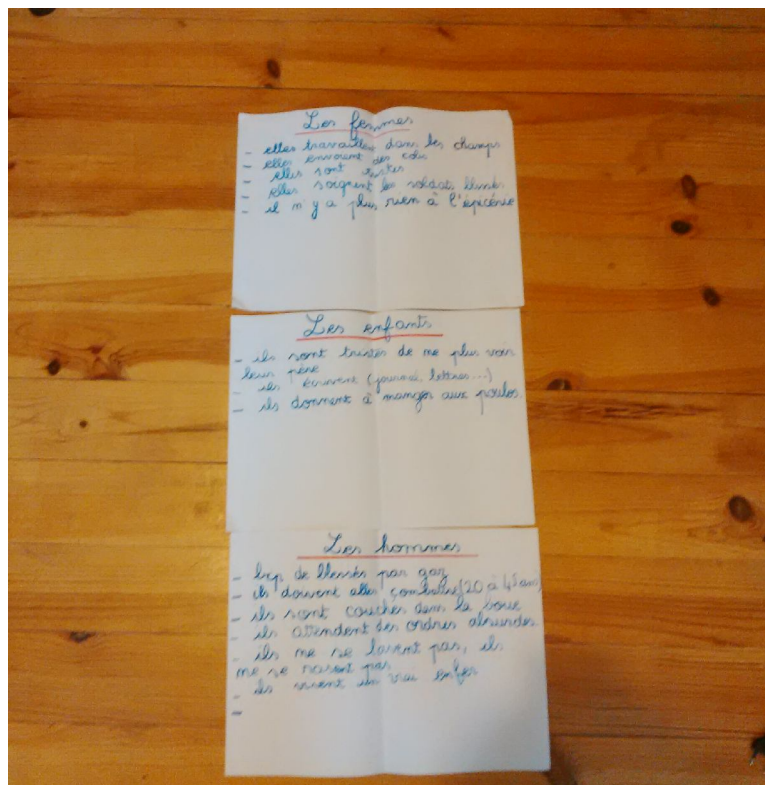 Les femmes
- elles travaillent dans les champs
- elles envoient des colis
- elles sont tristes
- elles soignent les soldats blessés
- il n'y a plus rien à l'épicerie
Les enfants
- ils sont tristes de ne plus voir
leur père
- ils écrivent (journal, lettres...)
- ils donnent à manger aux poules.
Les hommes
- bcp de blessés par gaz
- ils doivent aller combattre (20 à 45 ans)
- ils sont couchés dans la boue
- ils attendent des ordres absurdes.
- ils ne se lavent pas, ils
ne se rasent pas
- ils vivent un vrai enfer
-